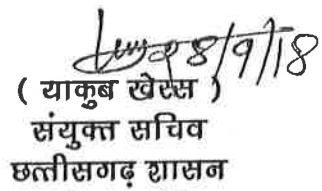 28/9/18
( याकुब खेस्स )
संयुक्त सचिव
छत्तीसगढ़ शासन